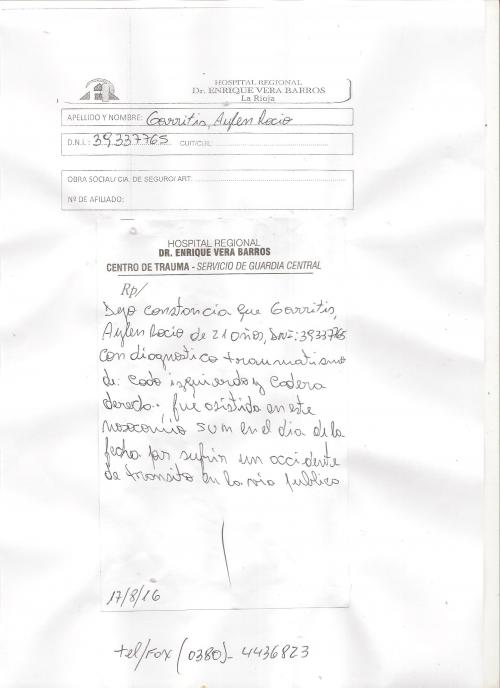 HOSPITAL REGIONAL
Dr. ENRIQUE VERA BARROS
La Rioja
APELLIDO Y NOMBRE: Garritis, Aylen Rocio
D.N.I.: 39337765 CUIT/CUIL:
OBRA SOCIAL/CIA. DE SEGURO/ART:
Nº DE AFILIADO:
HOSPITAL REGIONAL
DR. ENRIQUE VERA BARROS
CENTRO DE TRAUMA - SERVICIO DE GUARDIA CENTRAL
Rp/
Dejo constancia que Garritis,
Aylen Rocio de 21 años, DNI: 3933765
con diagnostico traumatismo
de codo izquierdo y cadera
derecha, fue asistida en este
nosocomio en el dia de la
fecha por sufrir un accidente
de transito en la via publica
17/8/16
tel/Fax (0380)- 4436823